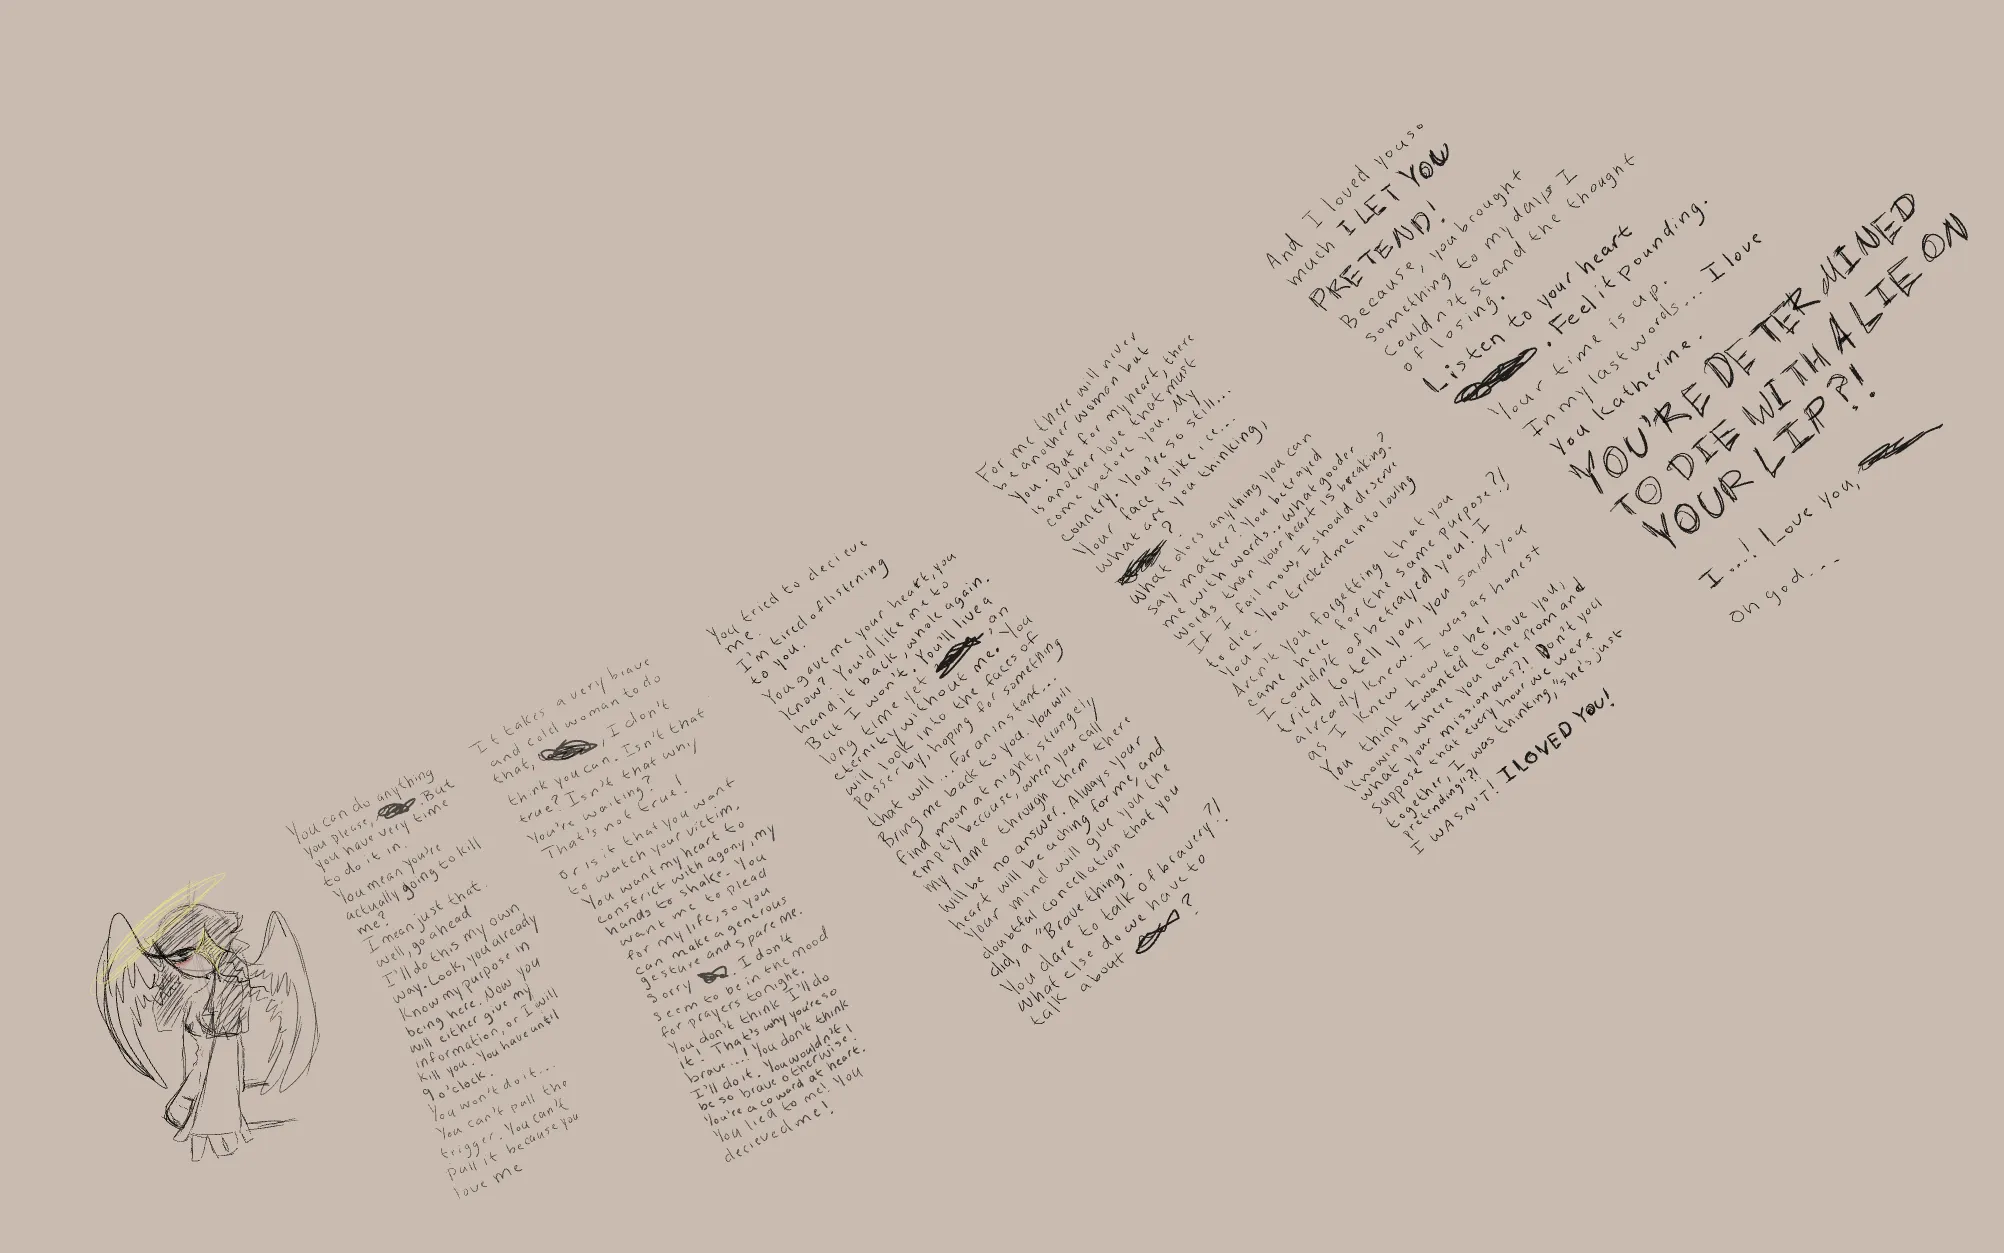 You can do anything
you please, . But
you have very time
to do it in.
You mean you're
actually going to kill
me?
I mean just that.
Well, go ahead
I'll do this my own
way. Look, you already
know my purpose in
being here. Now you
will either give my
information, or I will
kill you. You have until
9 o'clock.
You won't do it...
You can't pull the
trigger. You can't
pull it because you
love me
It takes a very brave
and cold woman to do
that, , I don't
think you can. Isn't that
true? Isn't that why
You're waiting?
That's not true!
Or is it that you want
to watch your victim.
You want my heart to
constrict with agony, my
hands to shake. You
want me to plead
for my life, so you
can make a generous
gesture and spare me.
Sorry . I don't
seem to be in the mood
for prayers tonight.
You don't think I'll do
it! That's why you're so
brave...! You don't think
I'll do it. You wouldn't
be so brave otherwise!
You're a coward at heart.
You lied to me! You
decieved me!
You tried to decieve
me.
I'm tired of listening
to you.
You gave me your heart, you
know? You'd like me to
hand it back, whole again.
But I won't. You'll live a
long time yet , an
eternity without me. You
will look into the faces of
passerby, hoping for something
that will... For an instant...
Bring me back to you. You will
find moon at night, strangely
empty because, when you call
my name through them there
will be no answer. Always your
heart will be aching for me, and
your mind will give you the
doubtful concellation that you
did, a "Brave thing."
You dare to talk of bravery?!
What else do we have to
talk about ?
For me there will never
be another woman but
you. But for my heart, there
is another love that must
come before you. My
country. You're so still...
Your face is like ice...
what are you thinking,
?
What does anything you can
say matter? You betrayed
me with words.. what gooder
words than your heart is breaking?
If I fail now, I should deserve
to die. You tricked me into loving
you-
Aren't you forgetting that you
came here for the same purpose?!
I couldn't of betrayed you! I
tried to tell you, you said you
already knew. I was as honest
as I knew how to be!
You think I wanted to love you,
knowing where you came from and
what your mission was?! Don't you
suppose that every hour we were
together, I was thinking, "she's just
pretending"?!
I WASN'T! I LOVED YOU!
And I loved you so
much I LET YOU
PRETEND!
Because, you brought
something to my days I
couldn't stand the thought
of losing.
Listen to your heart
. Feel it pounding.
Your time is up.
In my last words... I love
you Katherine.
YOU'RE DETERMINED
TO DIE WITH A LIE ON
YOUR LIP?!
I...! Love you,
Oh god...